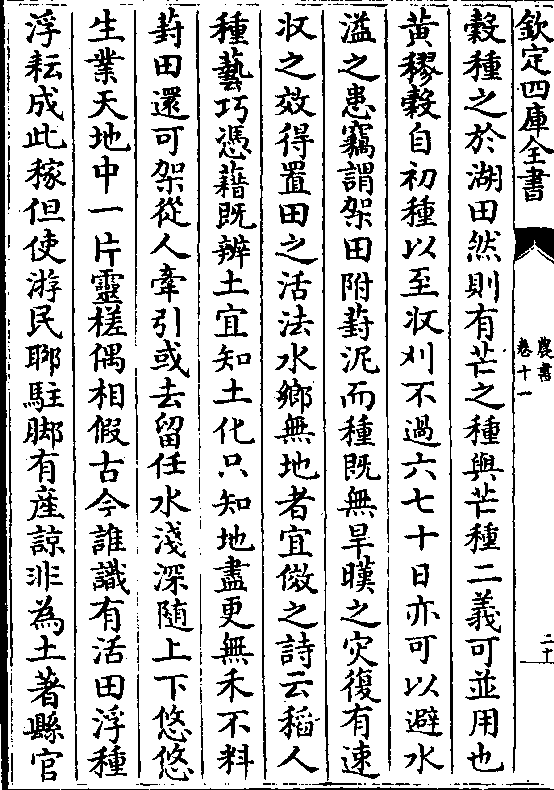 欽定四庫全書
農書
卷十一
二十
穀種之於湖田然則有芒之種與芒種二義可並用也
黄穋穀自初種以至收刈不過六七十日亦可以避水
溢之患竊謂架田附葑泥而種既無旱暵之灾復有速
收之效得置田之活法水鄉無地者宜倣之詩云稻人
種藝巧憑藉既辨土宜知土化只知地盡更無禾不料
葑田還可架從人牽引或去留任水淺深隨上下悠悠
生業天地中一片靈槎偶相假古今誰識有活田浮種
浮耘成此稼但使游民聊駐脚有産諒非為土著縣官